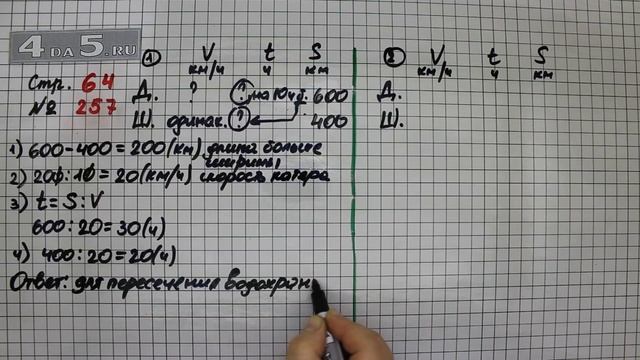 4DA5.RU
Стр. 64
№ 257
① V t S
км/ч ч км
Д. ? ? на 10 ч б. 600
Ш. одинак. ? 400
1) 600-400=200(км) длина больше
ширины
2) 200:10=20(км/ч) скорость катера
3) t=S:V
600:20=30(ч)
4) 400:20=20(ч)
Ответ: для пересечения водохран
② V t S
км/ч ч км
Д.
Ш.